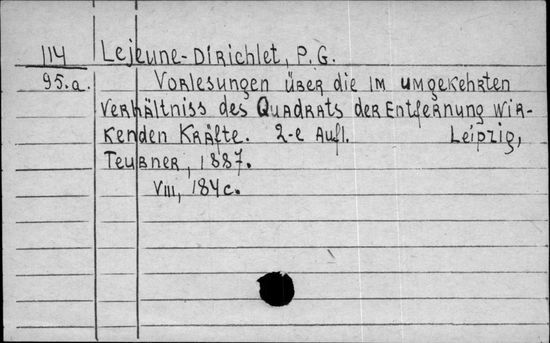 114 Lejeune-Dirichlet, P.G.
95.a. Vorlesungen über die im umgekehrten
Verhältniss des Quadrats der Entfernung wir-
kenden Kräfte. 2-e Aufl. Leipzig,
Teubner, 1887.
VIII, 184c.